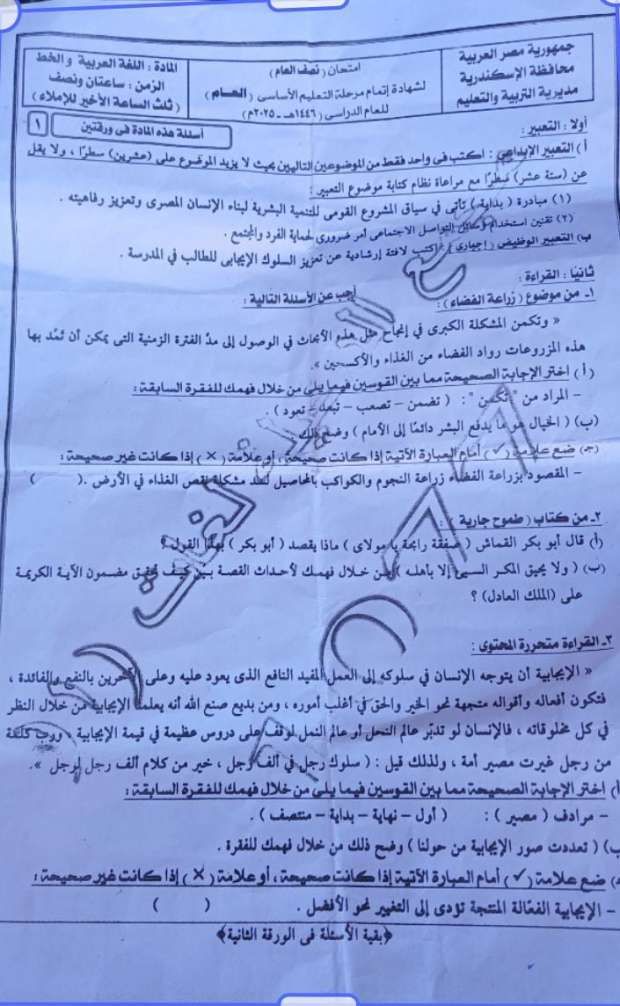 جمهورية مصر العربية
محافظة الإسكندرية
مديرية التربية والتعليم
امتحان (نصف العام)
لشهادة إتمام مرحلة التعليم الأساسى (العـــام)
للعام الدراسى (١٤٤٦هـ - ٢٠٢٥م)
المادة : اللغة العربية والخط
الزمن : ساعتان ونصف
(ثلث الساعة الأخير للإملاء)
أسئلة هذه المادة فى ورقتين
١
أولا : التعبير :
أ) التعبير الإبداعى : اكتب فى واحد فقط من الموضوعين التاليين بحيث لا يزيد الموضوع على (عشرين) سطرًا ، ولا يقل
عن (ستة عشر) سطرًا مع مراعاة نظام كتابة موضوع التعبير :
(١) مبادرة ( بداية ) تأتى في سياق المشروع القومى للتنمية البشرية لبناء الإنسان المصرى وتعزيز رفاهيته .
(٢) تقنين استخدام وسائل التواصل الاجتماعى أمر ضرورى لحماية الفرد والمجتمع .
ب) التعبير الوظيفى (إجبارى) : اكتب لافتة إرشادية عن تعزيز السلوك الإيجابى للطالب في المدرسة .
ثانيًا : القراءة :
أجب عن الأسئلة التالية :
١- من موضوع ( زراعة الفضاء) :
« وتكمن المشكلة الكبرى في إنجاح مثل هذه الأبحاث في الوصول إلى مدّ الفترة الزمنية التى يمكن أن تُمد بها
هذه المزروعات رواد الفضاء من الغذاء والأكسجين ».
(أ) اختر الإجابة الصحيحة مما بين القوسين فيما يلى من خلال فهمك للفقرة السابقة :
- المراد من " تكمن " : ( تضمن - تصعب - تبعد - تعود ) .
(ب) ( الخيال هو ما يدفع البشر دائمًا إلى الأمام ) وضح ذلك
(جـ) ضع علامة (✓) أمام العبارة الآتية إذا كانت صحيحة ، أو علامة (×) إذا كانت غير صحيحة :
- المقصود بزراعة الفضاء زراعة النجوم والكواكب بالمحاصيل لحل مشكلة نقص الغذاء في الأرض . ( )
٢- من كتاب ( طموح جارية ) :
(أ) قال أبو بكر القماش ( صفقة رابحة يا مولاى ) ماذا يقصد ( أبو بكر ) بهذا القول ؟
(ب) ( ولا يحيق المكر السيئ إلا بأهله ) من خلال فهمك لأحداث القصة بين كيف تحقق مضمون الآية الكريمة
على (الملك العادل) ؟
٣- القراءة متحررة المحتوى :
« الإيجابية أن يتوجه الإنسان في سلوكه إلى العمل المفيد النافع الذى يعود عليه وعلى الآخرين بالنفع والفائدة ،
فتكون أفعاله وأقواله متجهة نحو الخير والحق في أغلب أموره ، ومن بديع صنع الله أنه يعلمنا الإيجابية من خلال النظر
في كل مخلوقاته ، فالإنسان لو تدبّر عالم النحل أو عالم النمل لوقف على دروس عظيمة في قيمة الإيجابية ، ورب كلمة
من رجل غيرت مصير أمة ، ولذلك قيل : ( سلوك رجل في ألف رجل ، خير من كلام ألف رجل لرجل ».
أ) اختر الإجابة الصحيحة مما بين القوسين فيما يلى من خلال فهمك للفقرة السابقة :
- مرادف ( مصير ) : ( أول - نهاية - بداية - منتصف ) .
ب) ( تعددت صور الإيجابية من حولنا ) وضح ذلك من خلال فهمك للفقرة .
ضع علامة (✓) أمام العبارة الآتية إذا كانت صحيحة ، أو علامة (×) إذا كانت غير صحيحة :
- الإيجابية الفعّالة المنتجة تؤدى إلى التغيير نحو الأفضل . ( )
﴿بقية الأسئلة فى الورقة الثانية﴾